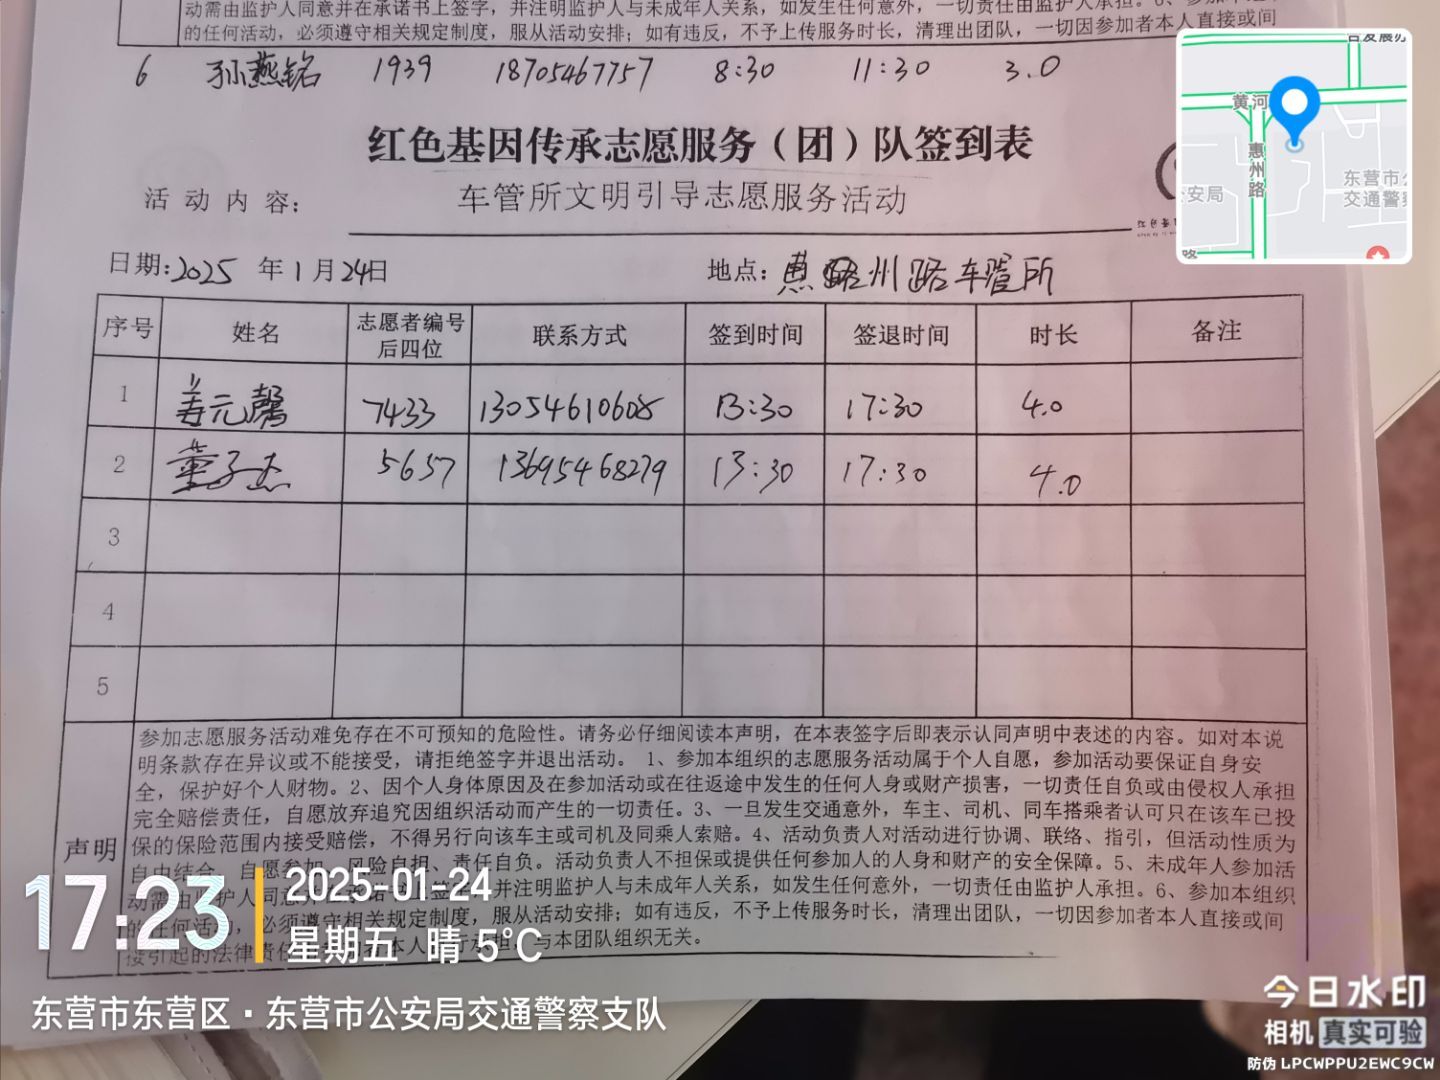 动需由监护人同意并在承诺书上签字，并注明监护人与未成年人关系，如发生任何意外，一切责任由监护人承担。6、参加本
的任何活动，必须遵守相关规定制度，服从活动安排；如有违反，不予上传服务时长，清理出团队，一切因参加者本人直接或间
6 孙燕铭 1939 18705467757 8:30 11:30 3.0
红色基因传承志愿服务（团）队签到表
活动内容： 车管所文明引导志愿服务活动
日期:2025 年1月24日 地点：惠州路车管所
序号 姓名 志愿者编号后四位 联系方式 签到时间 签退时间 时长 备注
1 姜元馨 7433 13054610608 13:30 17:30 4.0
2 董子杰 5657 13695468279 13:30 17:30 4.0
3
4
5
声明
参加志愿服务活动难免存在不可预知的危险性。请务必仔细阅读本声明，在本表签字后即表示认同声明中表述的内容。如对本说
明条款存在异议或不能接受，请拒绝签字并退出活动。 1、参加本组织的志愿服务活动属于个人自愿，参加活动要保证自身安
全，保护好个人财物。2、因个人身体原因及在参加活动或在往返途中发生的任何人身或财产损害，一切责任自负或由侵权人承担
完全赔偿责任，自愿放弃追究因组织活动而产生的一切责任。3、一旦发生交通意外，车主、司机、同车搭乘者认可只在该车已投
保的保险范围内接受赔偿，不得另行向该车主或司机及同乘人索赔。4、活动负责人对活动进行协调、联络、指引，但活动性质为
自由结合，自愿参加，风险自担、责任自负。活动负责人不担保或提供任何参加人的人身和财产的安全保障。5、未成年人参加活
动需由监护人同意 并注明监护人与未成年人关系，如发生任何意外，一切责任由监护人承担。6、参加本组织
的任何活动，必须遵守相关规定制度，服从活动安排；如有违反，不予上传服务时长，清理出团队，一切因参加者本人直接或间
接引起的法律责任 本人 承担，与本团队组织无关。
黄河
惠州路
公安局
东营市公
交通警察
路
17:23
2025-01-24
星期五 晴 5℃
东营市东营区·东营市公安局交通警察支队
今日水印
相机 真实可验
防伪 LPCWPPU2EWC9CW